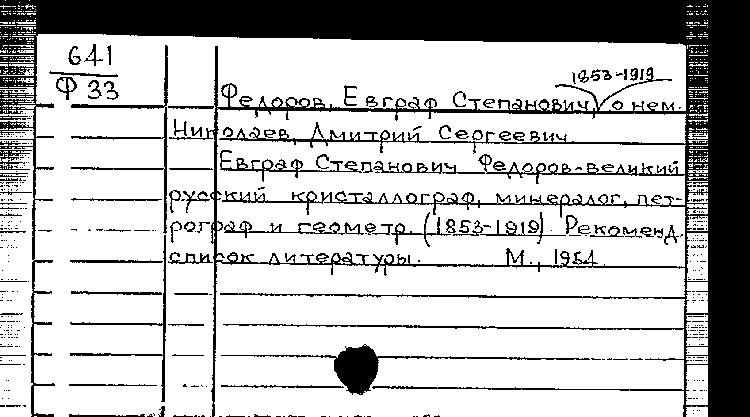 641
Ф 33
1853-1919
Федоров, Евграф Степанович, о нем.
Николаев, Дмитрий Сергеевич.
Евграф Степанович Федоров-великий
русский кристаллограф, минералог, пет-
рограф и геометр. (1853-1919). Рекоменд.
список литературы. М., 1951.